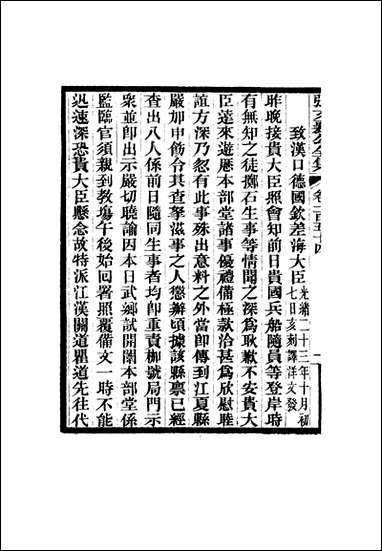 張文襄公全集 卷一百五十四 一
致漢口德國欽差海大臣 光緒二十三年十月初七日亥刻譯洋文發
昨晚接貴大臣照會知前日貴國兵船隨員等登岸時
有無知之徒擲石生事等情聞之深爲耿歉不安貴大
臣遠來遊歷本部堂諸事優禮備極款洽甚爲欣慰睦
誼方深乃忽有此事殊出意料之外當卽傳到江夏縣
嚴加申飭令其查拏滋事之人懲辦頃據該縣稟已經
查出八人係前日隨同生事者均卽重責枷號局門示
衆並卽出示嚴切曉諭因本日武鄉試開闈本部堂係
監臨官須親到教塲午後始回署照覆備文一時不能
迅速深恐貴大臣懸念故特派江漢關道瞿道先往代